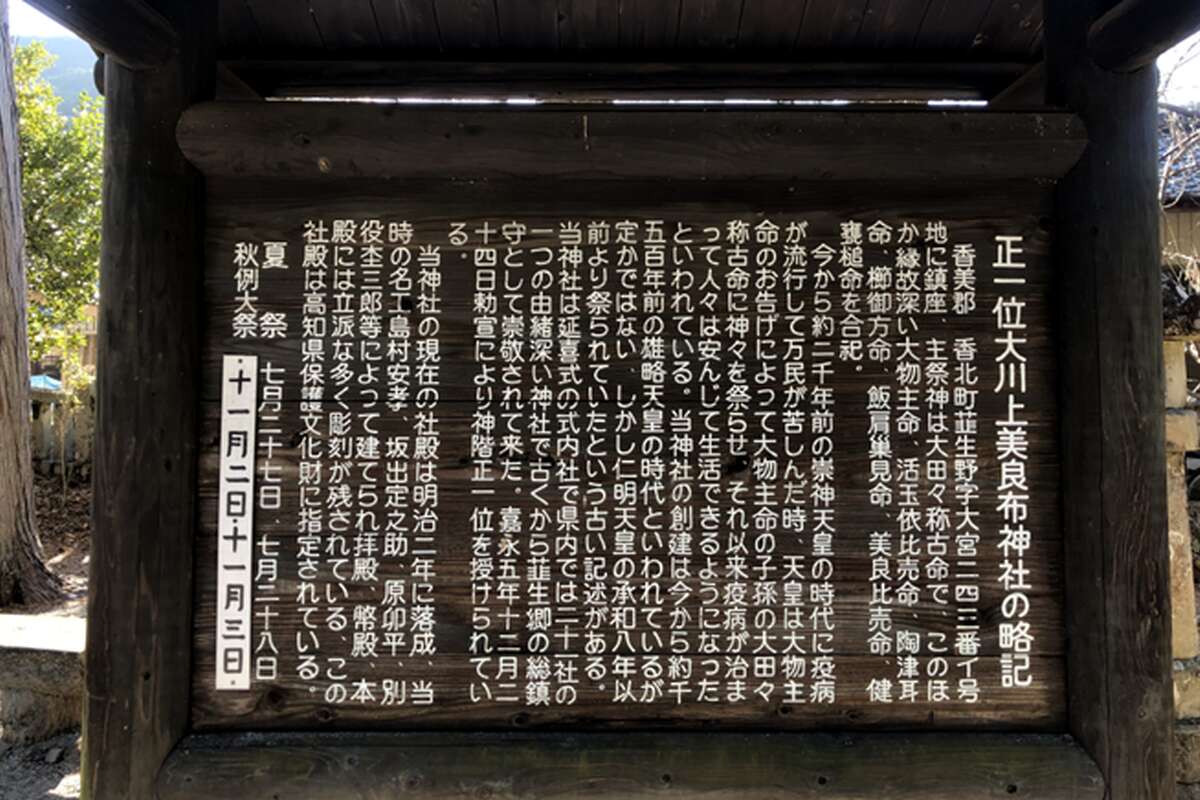 正一位大川上美良布神社の略記
香美郡 香北町韮生野字大宮二四三番イ号
地に鎮座 主祭神は大田々称古命で、このほ
か縁故深い大物主命、活玉依比売命、陶津耳
命、櫛御方命、飯肩巣見命、美良比売命、健
甕槌命を合祀。
今から約二千年前の崇神天皇の時代に疫病
が流行して万民が苦しんだ時、天皇は大物主
命のお告げによって大物主命の子孫の大田々
称古命に神々を祭らせ。それ以来疫病が治ま
って人々は安んじて生活できるようになった
といわれている。当神社の創建は今から約千
五百年前の雄略天皇の時代といわれているが
定かではない、しかし仁明天皇の承和八年以
前より祭られていたという古い記述がある。
当神社は延喜式の式内社で県内では二十一社の
一つの由緒深い神社で古くから韮生郷の総鎮
守として崇敬されて来た。嘉永五年十二月二
十四日勅宣により神階正一位を授けられてい
る。
当神社の現在の社殿は明治二年に落成、当
時の名工島村安孝、坂出定之助、原卯平、別
役杢三郎等によって建てられ拝殿、幣殿、本
殿には立派な多く彫刻が残されている、この
社殿は高知県保護文化財に指定されている。
夏祭 七月二十七日、七月二十八日
秋例大祭 十一月二日・十一月三日